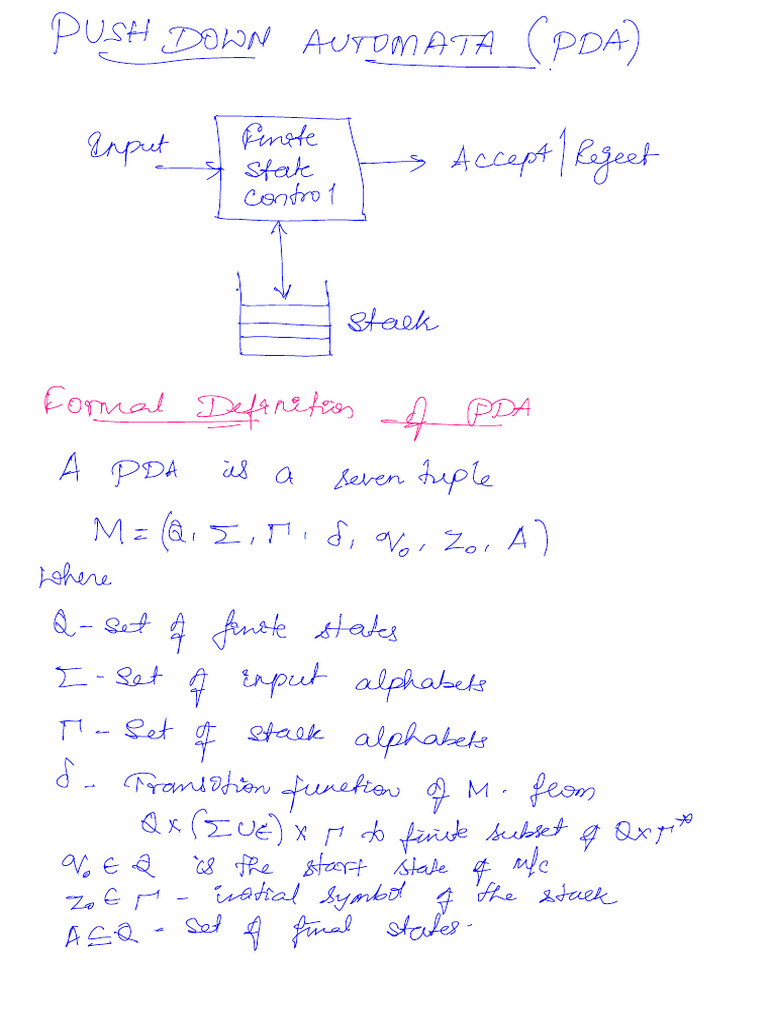 PUSH DOWN AUTOMATA (PDA)
Input
Finite
State
control
Accept/Reject
Stack
Formal Definition of PDA
A PDA is a seven tuple
M = (Q, Σ, Γ, δ, q₀, Z₀, A)
where
Q - Set of finite states
Σ - Set of input alphabets
Γ - Set of stack alphabets
δ - Transition function of M. from
Q × (Σ ∪ ε) × Γ to finite subset of Q × Γ*
q₀ ∈ Q is the start state of M/c
Z₀ ∈ Γ - initial symbol of the stack
A ⊆ Q - Set of final states.